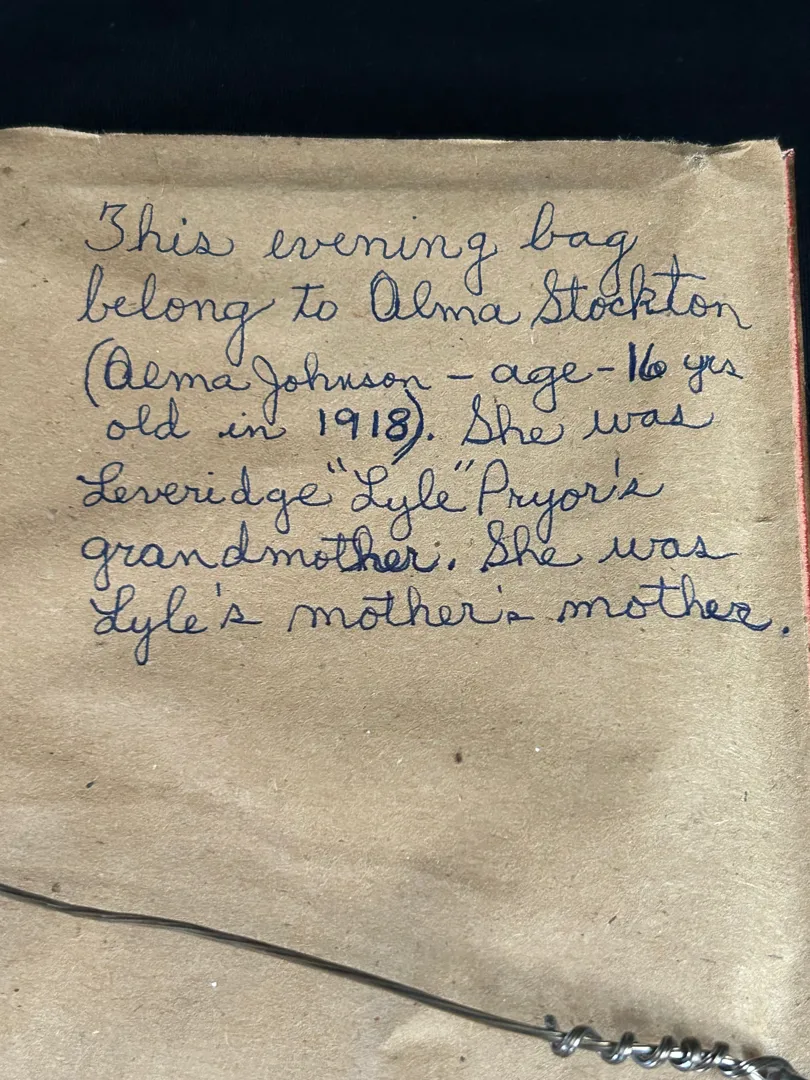 This evening bag
belong to Alma Stockton
(Alma Johnson - age - 16 yrs
old in 1918). She was
Leveridge "Lyle" Pryor's
grandmother. She was
Lyle's mother's mother.